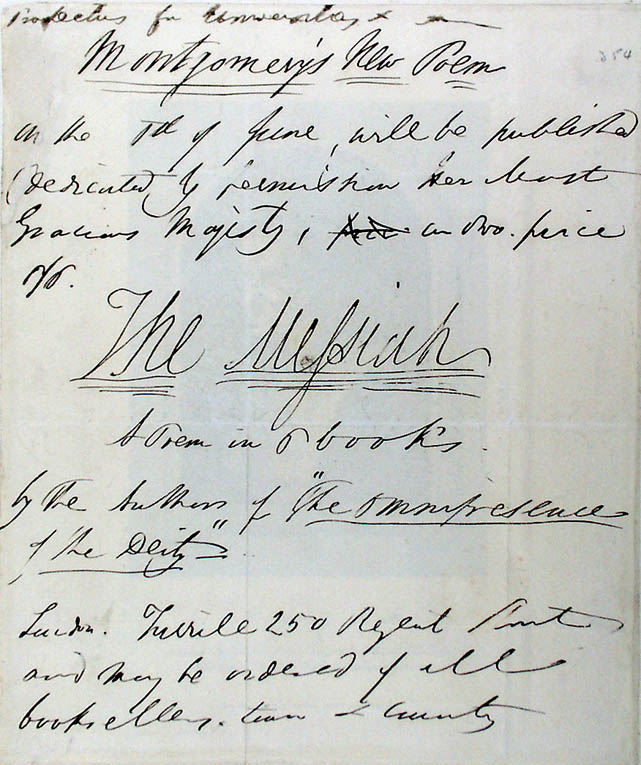 Prospectus for Universities &
354
Montgomery's New Poem
On the 1st of June, will be published
(dedicated, by permission Her Most
Gracious Majesty, in 8vo. price
The Messiah
A Poem in 6 books.
by the Author of "The Omnipresence
of the Deity"
London. Turrill 250 Regent Street
and may be ordered of all
booksellers. town & country